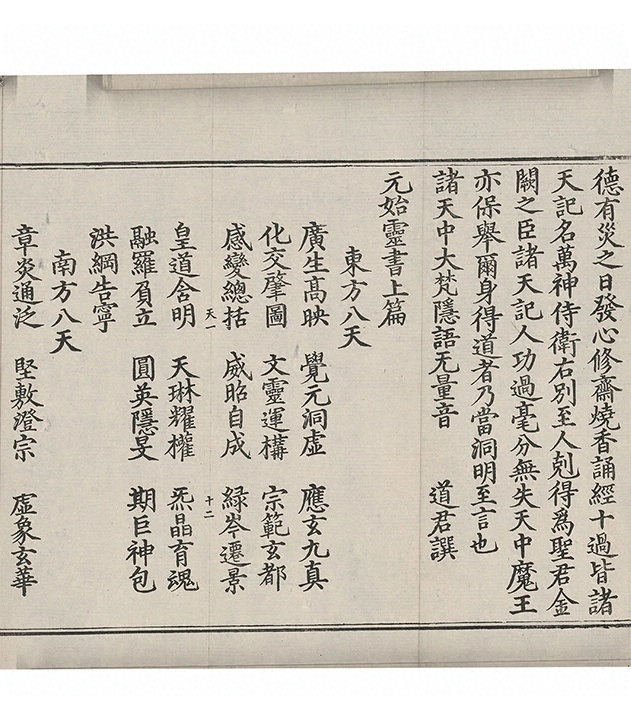 德有災之日發心修齋燒香誦經十過皆諸
天記名萬神侍衛右別至人剋得爲聖君金
闕之臣諸天記人功過毫分無失天中魔王
亦保舉爾身得道者乃當洞明至言也
諸天中大梵隱語无量音　道君譔
元始靈書上篇
東方八天
廣生髙映　覺元洞虛　應玄九真
化交肇圖　文靈運構　宗範玄都
感變總括　威昭自成　緑岑遷景
天一　十二
皇道含明　天琳耀權　炁晶育魂
融羅負立　圓英隱旻　期巨神包
洪綱告寧
南方八天
章炎通泛　堅敷澄宗　虛象玄華